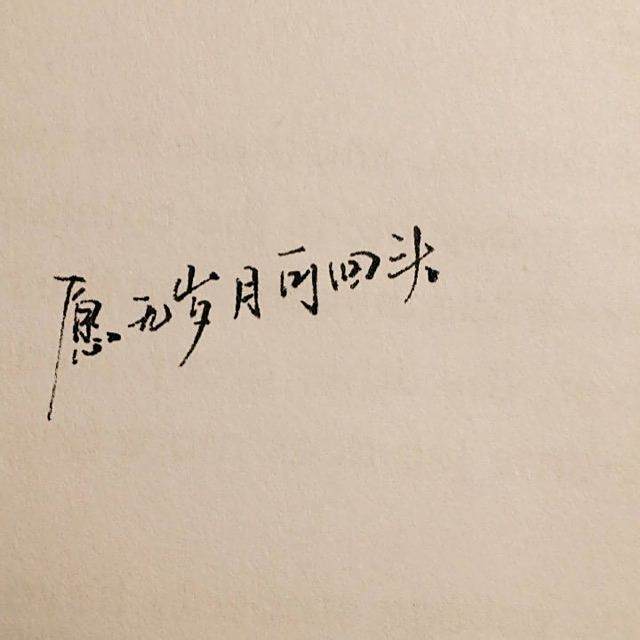 愿无岁月可回头